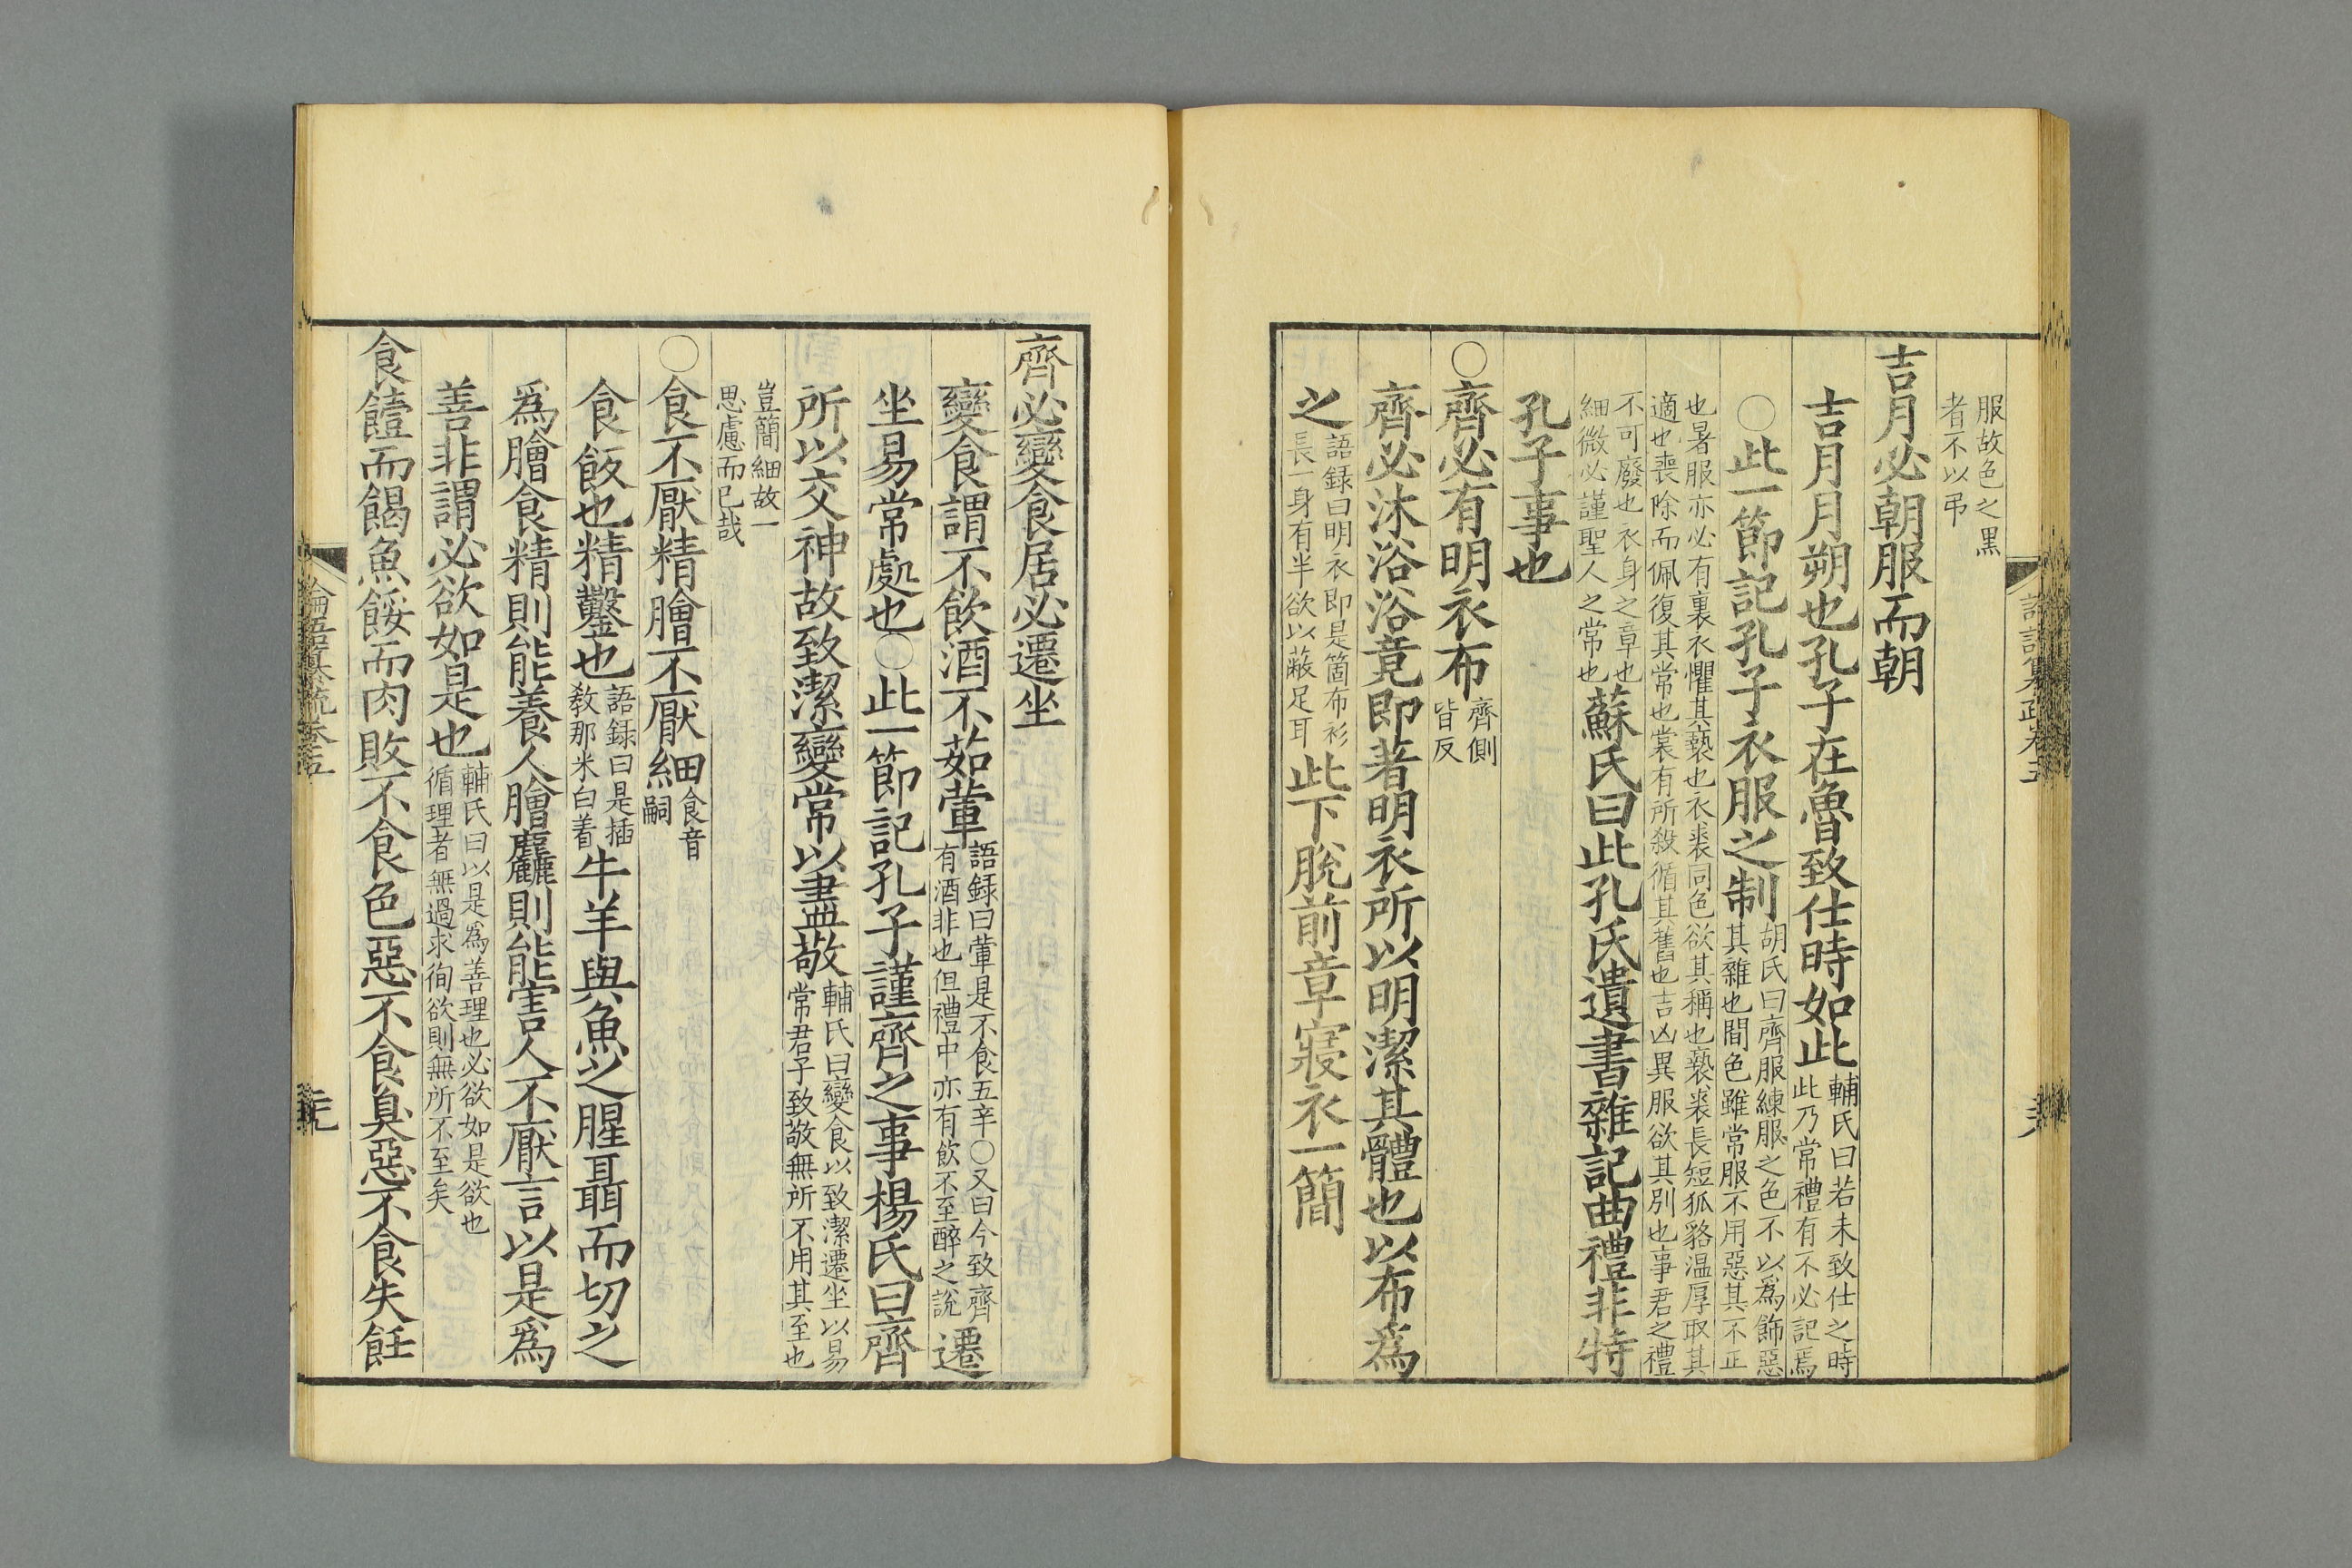 服故色之黑
者不以弔
吉月必朝服而朝
吉月月朔也孔子在魯致仕時如此輔氏曰若未致仕之時
此乃常禮有不必記焉
○此一節記孔子衣服之制胡氏曰齊服練服之色不以爲飾惡
其雜也間色雖常服不用惡其不正
也暑服亦必有裏衣懼其褻也衣裘同色欲其稱也褻裘長短狐貉温厚取其
適也喪除而佩復其常也裳有所殺循其舊也吉凶異服欲其別也事君之禮
不可廢也衣身之章也
細微必謹聖人之常也蘇氏曰此孔氏遺書雜記曲禮非特
孔子事也
○齊必有明衣布齊側
皆反
齊必沐浴浴竟即著明衣所以明潔其體也以布爲
之語録曰明衣即是箇布衫
長一身有半欲以蔽足耳此下脫前章寢衣一簡
齊必變食居必遷坐
變食謂不飲酒不茹葷語録曰葷是不食五辛○又曰今致齊
有酒非也但禮中亦有飲不至醉之說遷
坐易常處也○此一節記孔子謹齊之事楊氏曰齊
所以交神故致潔變常以盡敬輔氏曰變食以致潔遷坐以易
常君子致敬無所不用其至也
豈簡細故一
思慮而已哉
○食不厭精膾不厭細食音
嗣
食飯也精鑿也語録曰是插
教那米白着牛羊與魚之腥聶而切之
爲膾食精則能養人膾麤則能害人不厭言以是爲
善非謂必欲如是也輔氏曰以是爲善理也必欲如是欲也
循理者無過求徇欲則無所不至矣
食饐而餲魚餒而肉敗不食色惡不食臭惡不食失飪
論語纂疏卷五